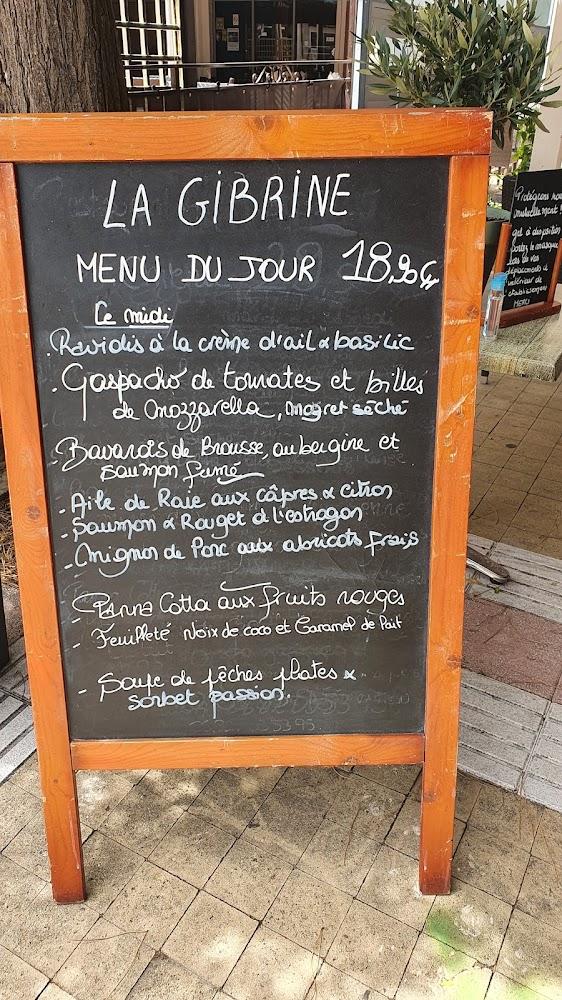 LA GiBRiNE
MENU DU JOUR 18,90€
Ce midi
. Raviolis à la crème d'ail & basilic
. Gaspacho de tomates et billes
de mozzarella, magret séché
- Bavarois de Brousse, aubergine et
saumon fumé
- Aile de Raie aux câpres & citron
- Saumon & Rouget à l'estragon
- Mignon de Porc aux abricots frais
- Panna Cotta aux fruits rouges
- Feuilleté Noix de coco et Caramel de lait
- Soupe de pêches plates &
sorbet passion.
Protégeons nous
mutuellement !
gel à disposition
Portez le masque
lors de vos
déplacements à
MERCI